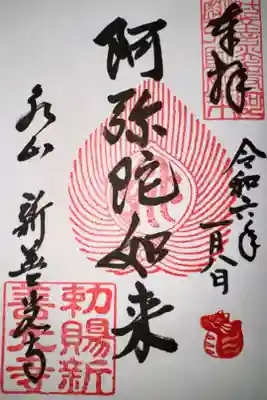 奉拝
令和六年
一月八日
阿弥陀如来
泉山 新善光寺
勅賜新
善光寺